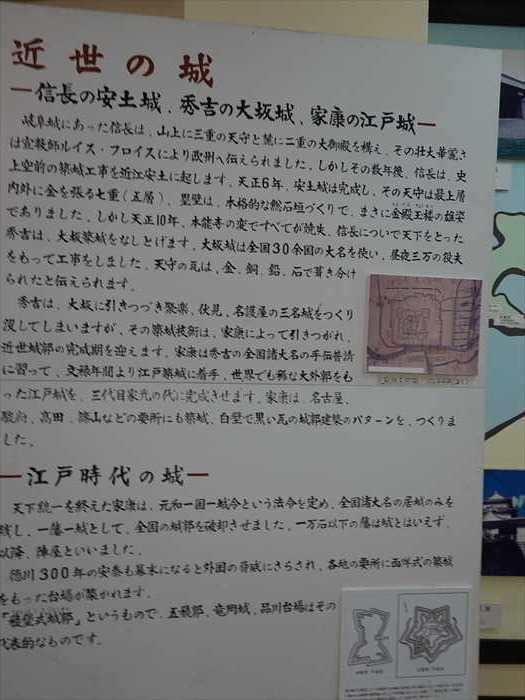 近世の城
―信長の安土城、秀吉の大坂城、家康の江戸城―
岐阜城にあった信長は、山上に三重の天守と麓に二重の大御殿を構え、その壮大華麗さ
は宣教師ルイス・フロイスにより欧州へ伝えられました。しかしその数年後、信長は、史
上空前の築城工事を近江安土に起します。天正6年、安土城は完成し、その天守は最上層
内外に金を張る七重(五層)、塁壁は、本格的な総石垣づくりで、まさに金殿玉楼の雄姿
でありました。しかし天正10年、本能寺の変ですべてが焼失、信長についで天下をとった
秀吉は、大坂築城をなしとげます。大坂城は全国30余国の大名を使い、昼夜三万の役夫
をもって工事をしました。天守の瓦は、金、銅、鉛、石で葺き分け
られたと伝えられます。
秀吉は、大坂に引きつづき聚楽、伏見、名護屋の三名城をつくり
没してしまいますが、その築城技術は、家康によって引きつがれ、
近世城郭の完成期を迎えます。家康は秀吉の全国諸大名の手伝普請
に習って、文禄年間より江戸築城に着手、世界でも稀な大外郭をも
った江戸城を、三代目家光の代に完成させます。家康は、名古屋、
駿府、高田、篠山などの要所にも築城、白壁で黒い瓦の城郭建築のパターンを、つくりま
した。
―江戸時代の城―
天下統一を終えた家康は、元和一国一城令という法令を定め、全国諸大名の居城のみを
残し、一藩一城として、全国の城郭を破却させました。一万石以下の藩は城とはいえず、
以降、陣屋といいました。
徳川300年の安泰も幕末になると外国の脅威にさらされ、各地の要所に西洋式の築城
をもった台場が築かれます。
「稜堡式城郭」というもので、五稜郭、竜岡城、品川台場はその
代表的なものです。